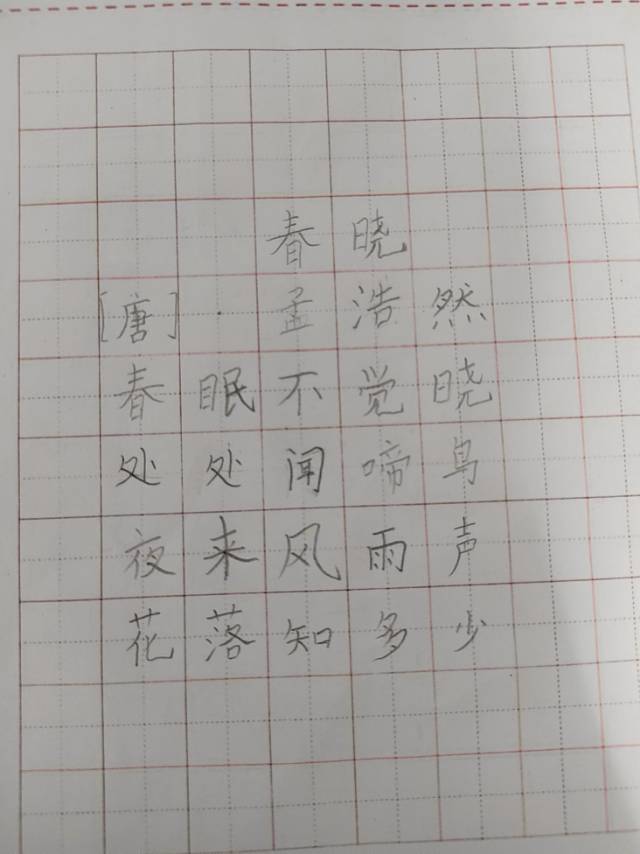 春晓
[唐]·孟浩然
春眠不觉晓
处处闻啼鸟
夜来风雨声
花落知多少